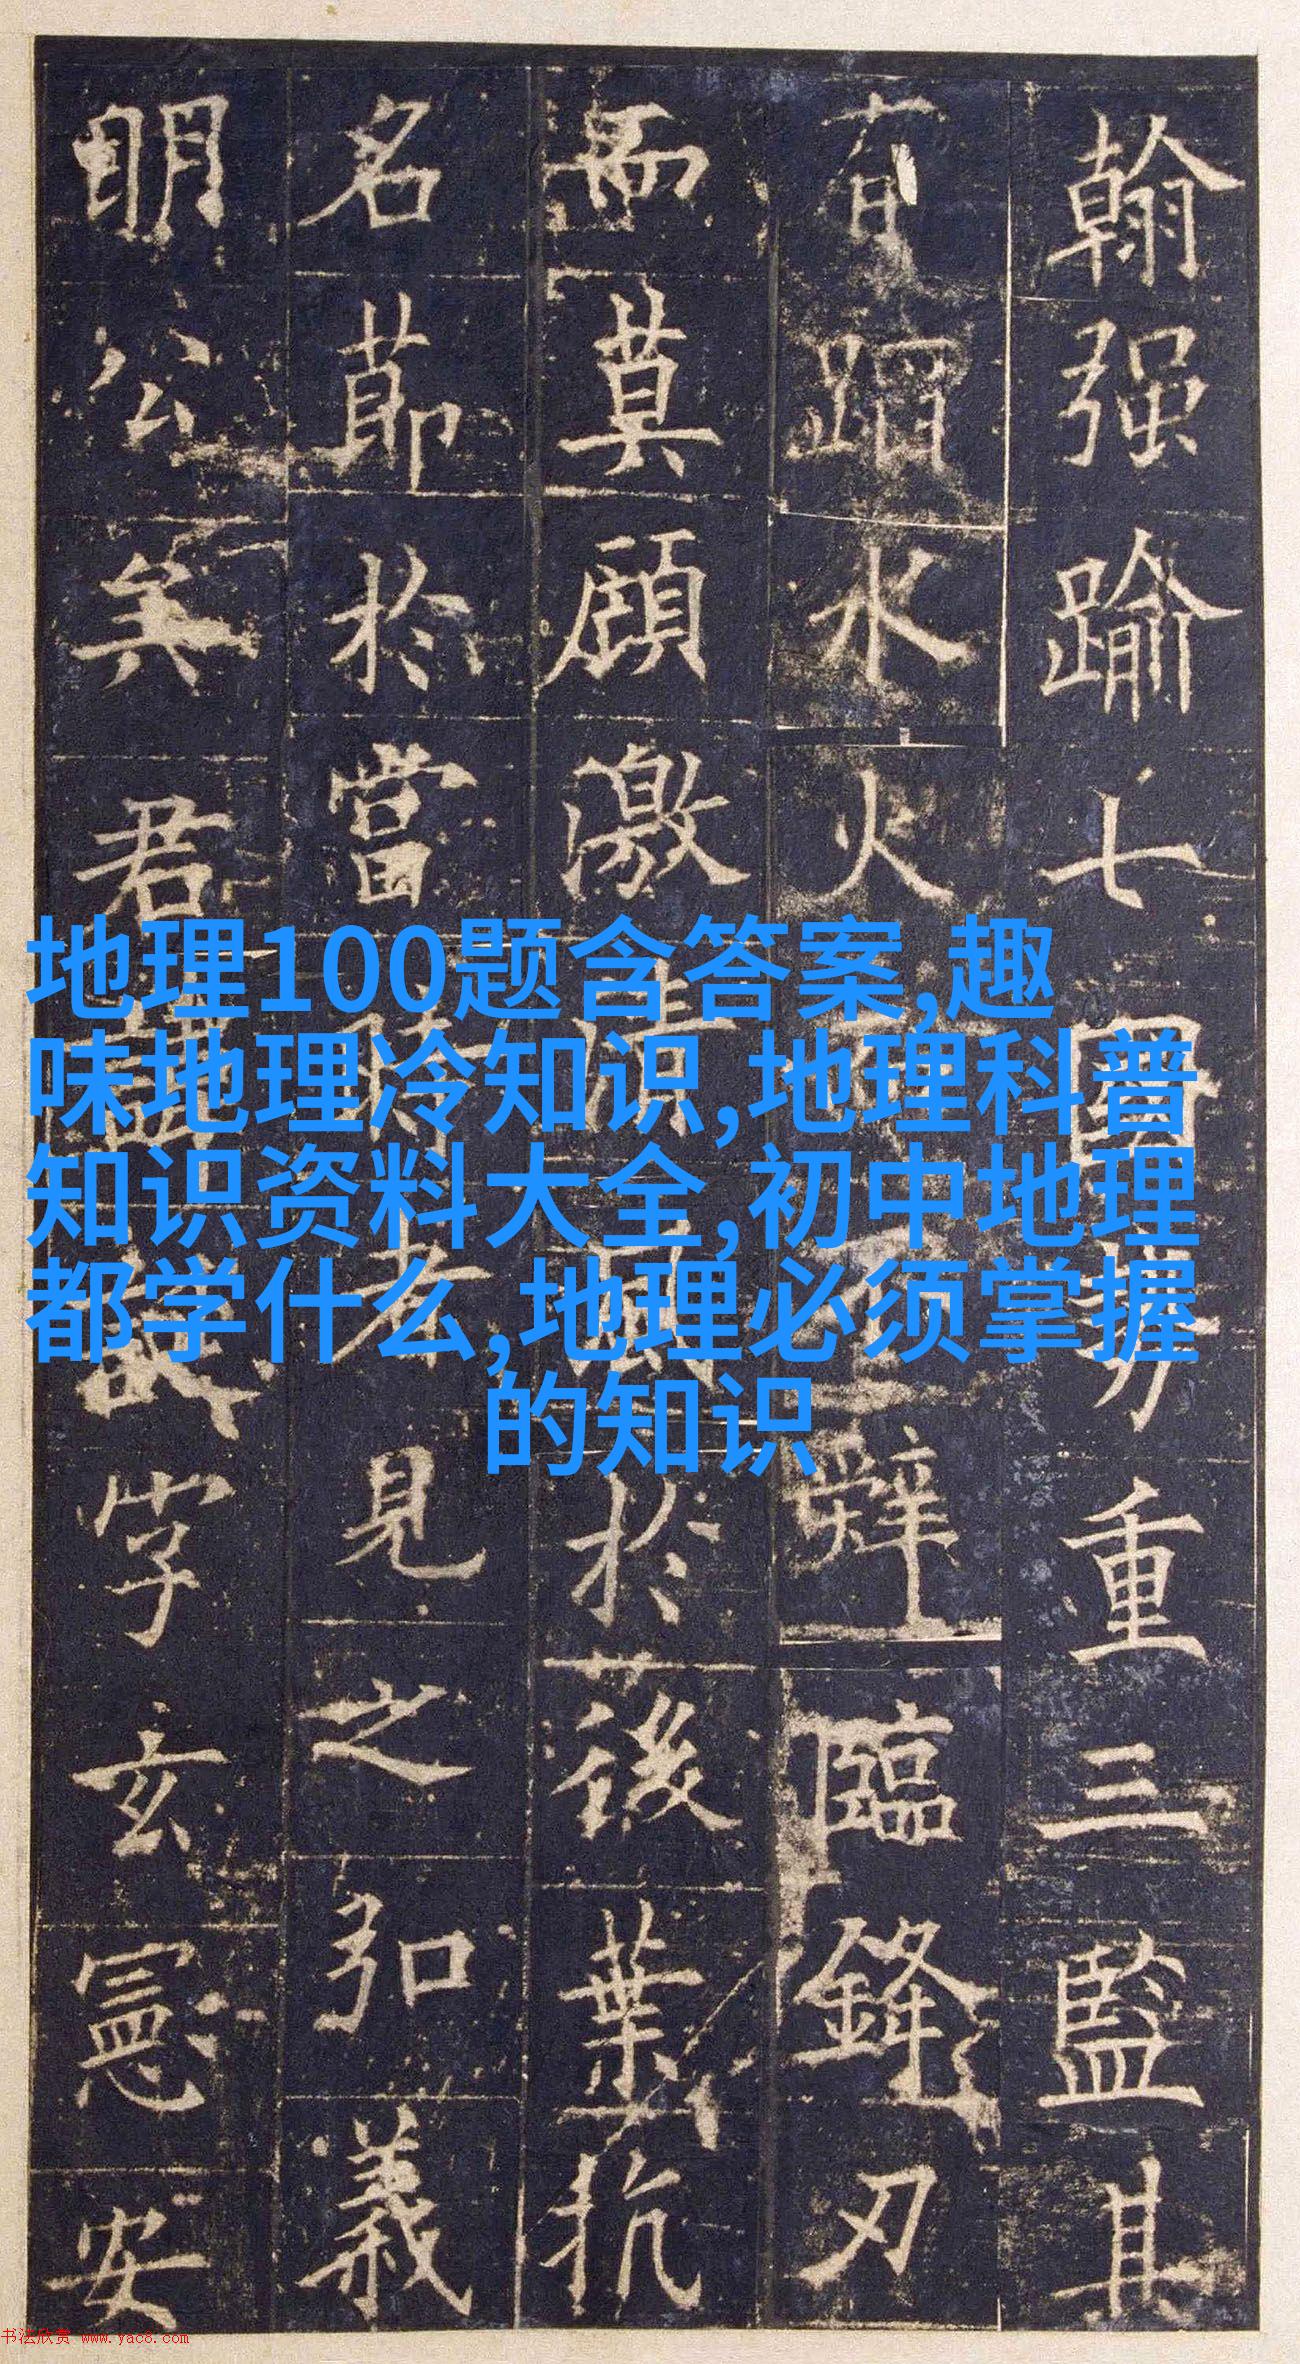 翰强踰七國勢重三監其
有蹈水火而不辭臨鋒刃
而莫顧激清風於後葉抗
名節於當時者見之弘義
明公矣君諱誕字玄憲安
地理100题含答案,趣
味地理冷知识,地理科普
知识资料大全,初中地理
都学什么,地理必须掌握
的知识
书法欣赏 www.yac8.com